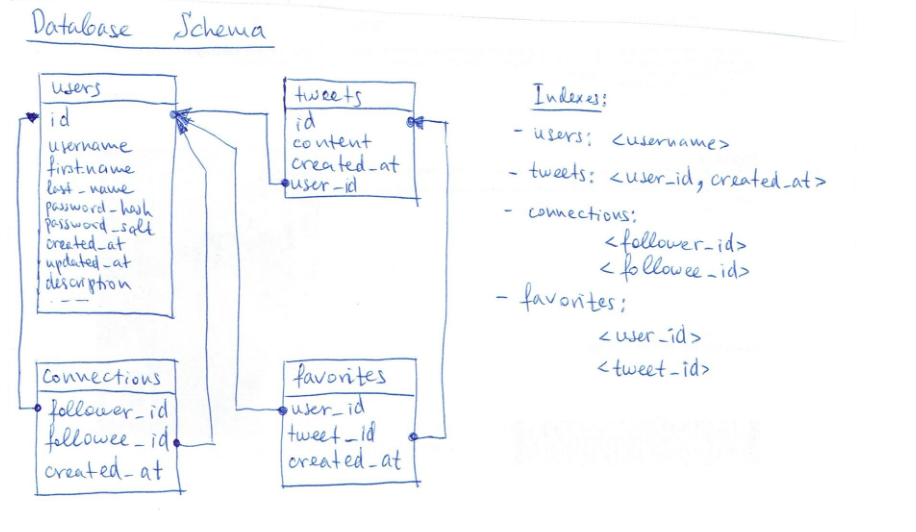 Database Schema
users
id
username
firstname
last_name
password_hash
password_salt
created_at
updated_at
description
. - - -
tweets
id
content
created_at
user_id
connections
follower_id
followee_id
created_at
favorites
user_id
tweet_id
created_at
Indexes:
- users: <username>
- tweets: <user_id, created_at>
- connections:
<follower_id>
<followee_id>
- favorites:
<user_id>
<tweet_id>